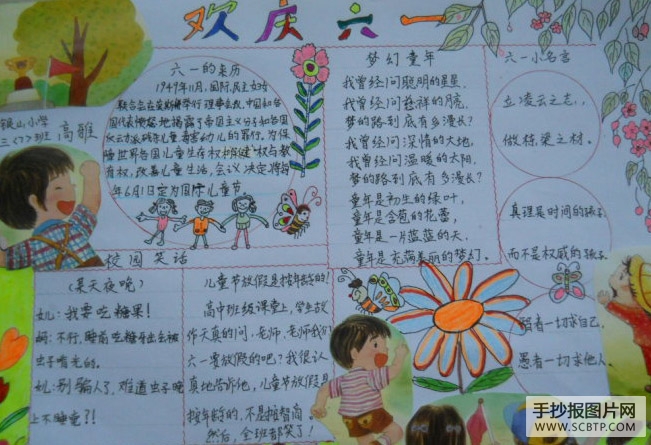 欢庆六一
银山小学
三〈7〉班 高雅
六一的来历
1949年11月,国际民主妇女
联合会在莫斯科举行理事会议,中国和各
国代表愤怒地揭露了帝国主义分子和各国
反动派残杀、毒害幼儿的罪行。为保
障世界各国儿童生存权、保健权与教
育权,改善儿童生活,会议决定将每
年6月1日定为国际儿童节。
梦幻童年
我曾经问聪明的星星,
我曾经问慈祥的月亮,
梦的路到底有多漫长?
我曾经问深情的大地,
我曾经问温暖的太阳,
梦的路到底有多漫长?
童年是初生的绿叶,
童年是含苞的花蕾,
童年是一片蓝蓝的天,
童年是充满美丽的梦幻。
六一小名言
立凌云之志,
做栋梁之材。
真理是时间的孩子
而不是权威的孩子。
智者一切求自己,
愚者一切求他人。
校园笑话
(某天夜晚)
女儿:我要吃糖果!
妈:不行,睡前吃糖牙齿会被
虫子啃光的。
女儿:别骗人了,难道虫子晚
上不睡觉?!
儿童节放假是按年龄的!
高中班级课堂上,学生故
作天真的问:老师,老师我们
六一要放假的吧?我很认
真地告诉他,儿童节放假是
按年龄的,不是按智商的
然后,全班都笑了!
手抄报图片网
WWW.SCBTP.COM